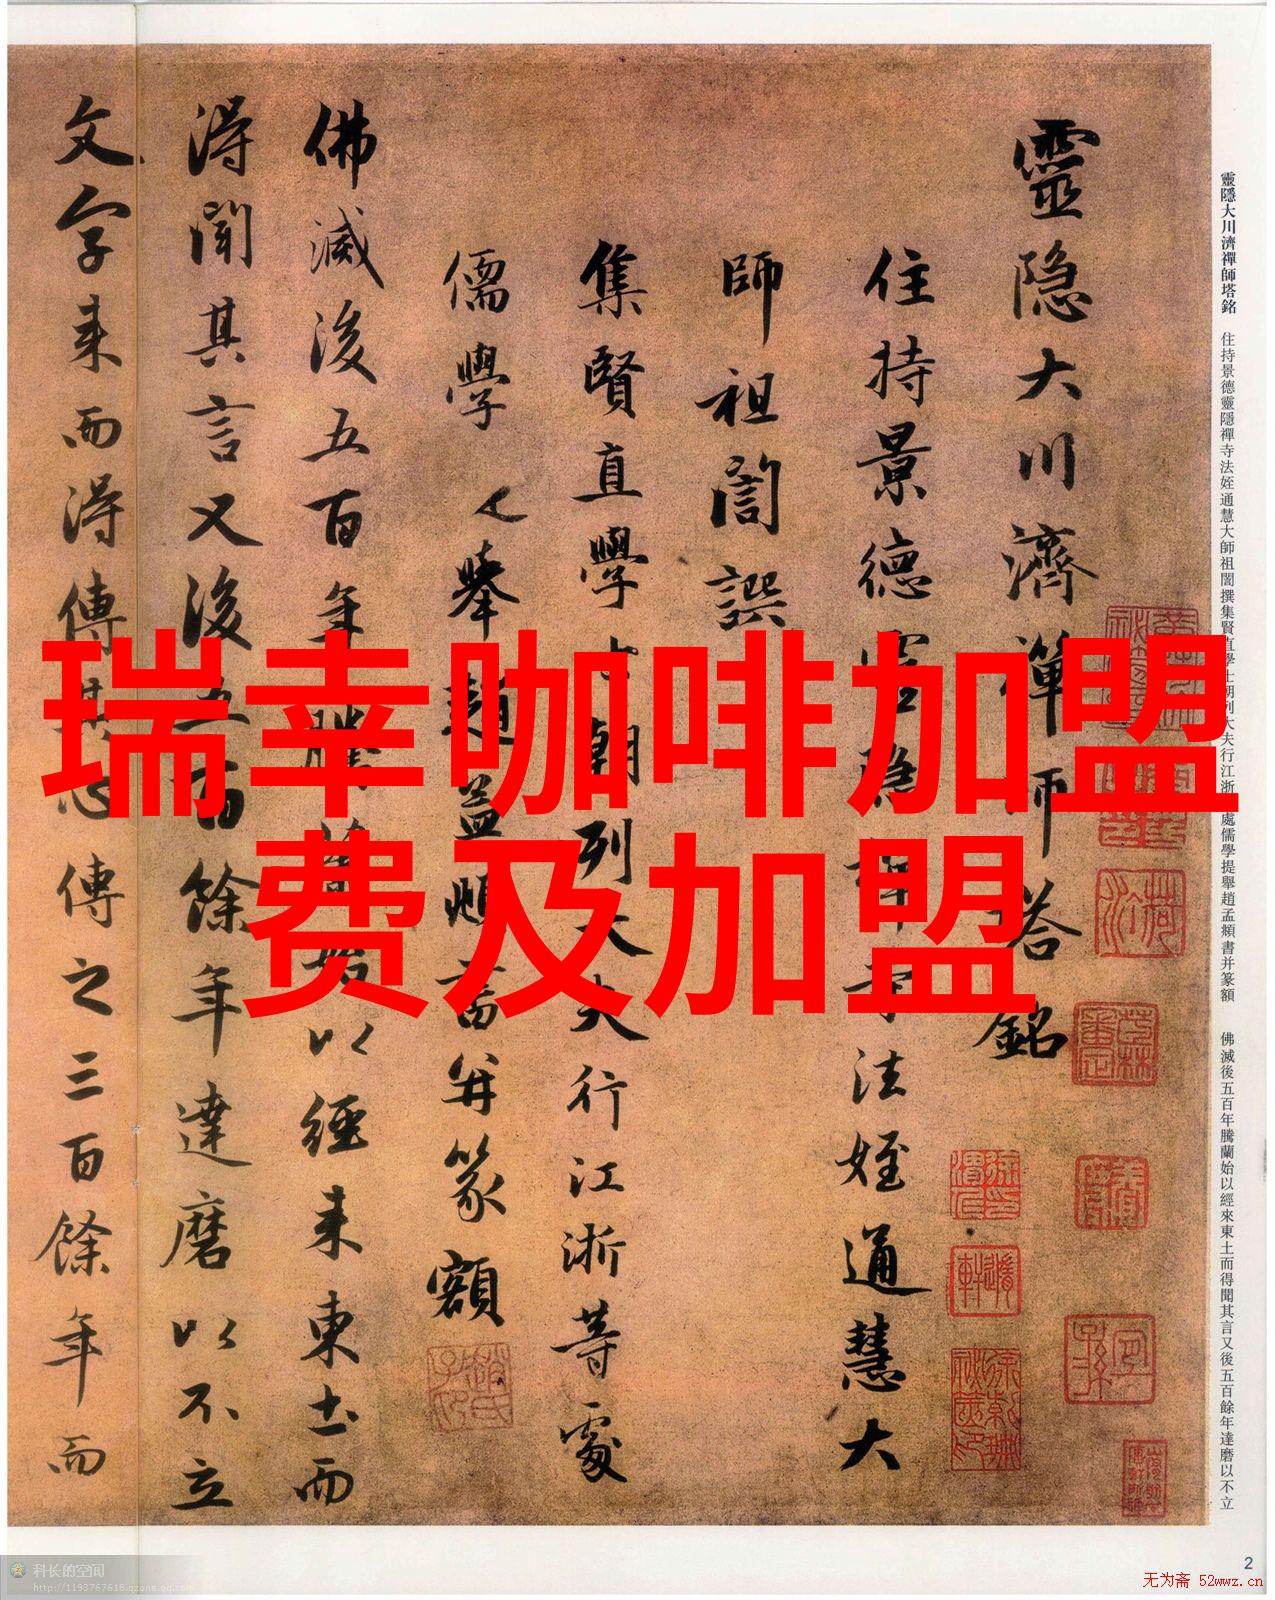 靈隐大川濟禪師塔銘
住持景德靈隐禪寺法姪通慧大
師祖誾譔
集賢直學士朝列大夫行江浙等處
儒學提舉趙孟頫書并篆額
佛滅後五百年騰蘭始以經来東土而
得聞其言又後五百餘年達磨以不立
文字来而得傳其心傳之三百餘年而
瑞幸咖啡加盟
费及加盟
靈隱大川濟禪師塔銘 住持景德靈隱禪寺法姪通慧大師祖誾撰集賢直學士朝列大夫行江浙等處儒學提舉趙孟頫書并篆額 佛滅後五百年騰蘭始以經來東土而得聞其言又後五百餘年達磨以不立
2
科长的空间
http://1193767618.qzone.qq.com
无为斋 52wwz.cn